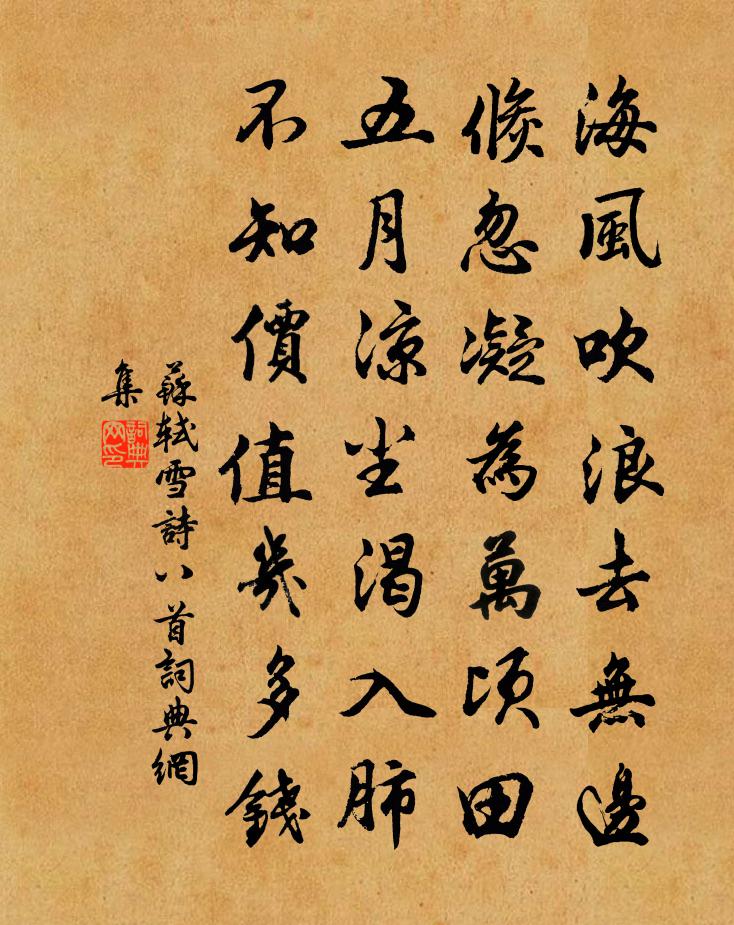 海風吹浪去無邊
倐忽凝為萬頃田
五月涼尘渴入肺
不知價值幾多錢
蘇軾雪詩八首詞典網
集
詞典
网印